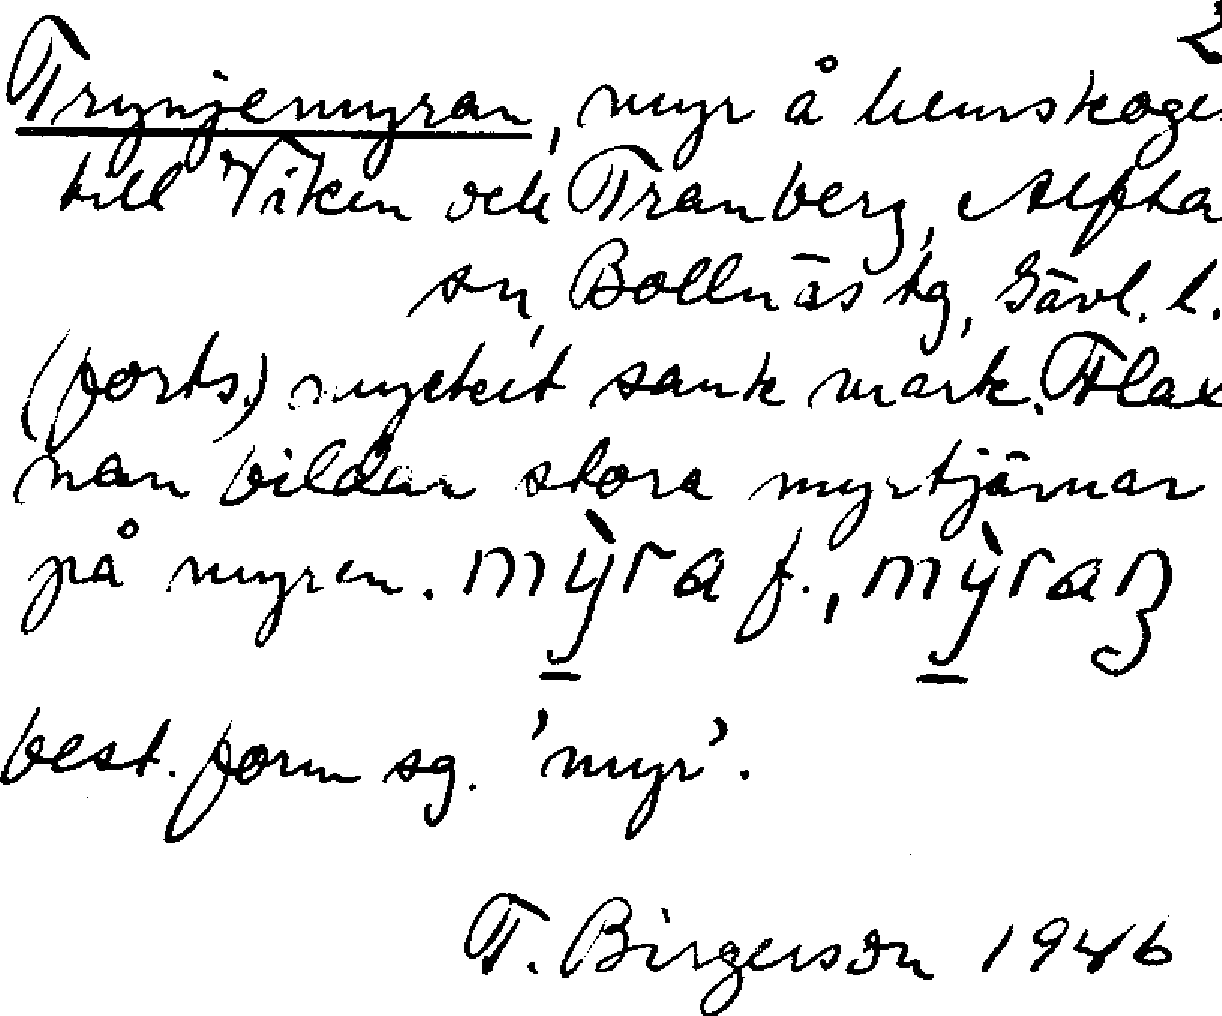 2
Trynjemyran, myr å hemskoge
till Viken och Tranberg, Alfta
sn, Bollnäs tg, Gävl. l.
(forts.) mycket sank mark. Flax
nan bildar stora myrtjärnar
på myren. mỳra f., mỳraɲ
best. form sg. 'myr'.
T. Birgerson 1946